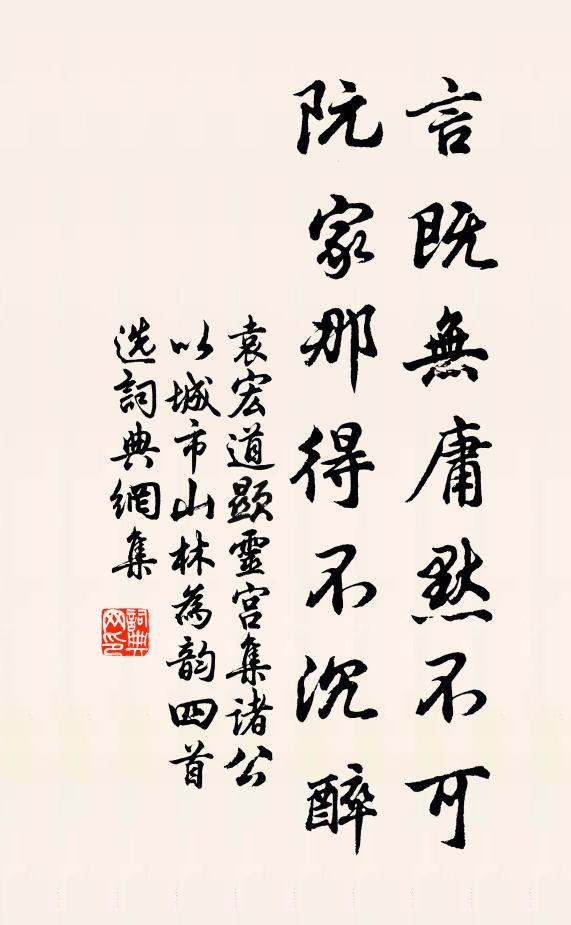 言既無庸默不可
阮家那得不沉醉
袁宏道顯靈宮集諸公
以城市山林為韵四首
选詞典網集
詞典
网印